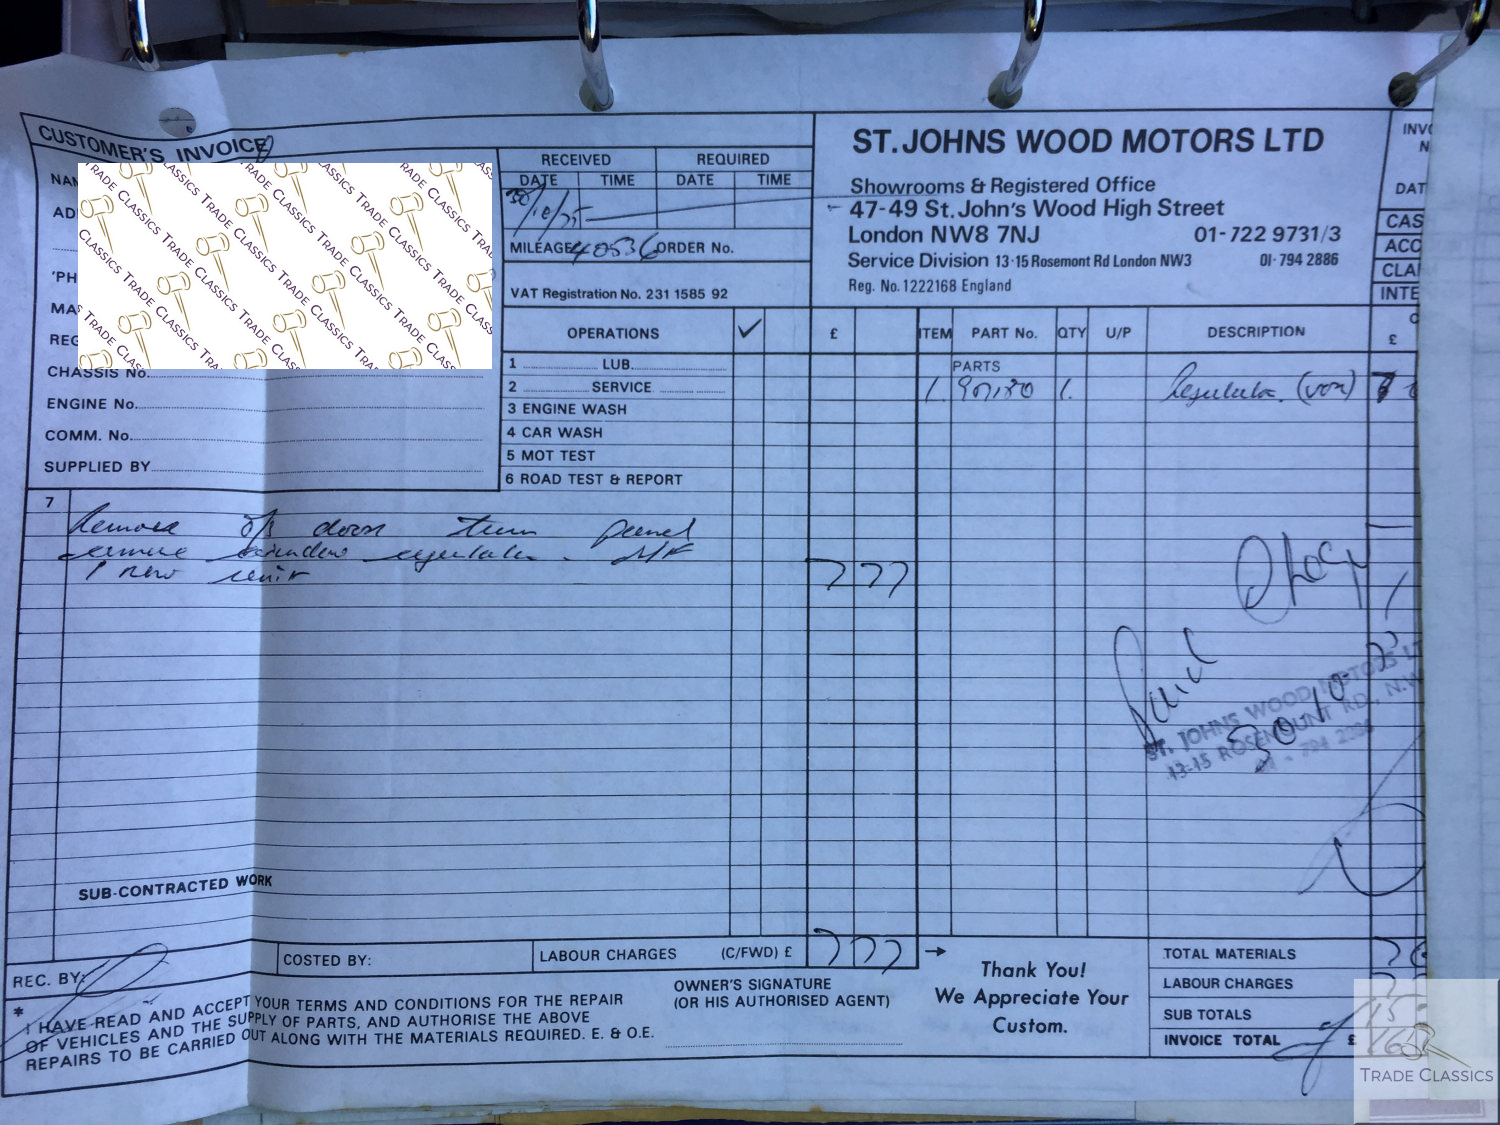 CUSTOMER'S INVOICE
ST. JOHNS WOOD MOTORS LTD
Showrooms & Registered Office
47-49 St. John's Wood High Street
London NW8 7NJ 01-722 9731/3
Service Division 13-15 Rosemont Rd London NW3 01-794 2886
Reg. No. 1222168 England
RECEIVED REQUIRED
DATE TIME DATE TIME
30/10/75
MILEAGE 40536 ORDER No.
VAT Registration No. 231 1585 92
'PH
CHASSIS No.
ENGINE No.
COMM. No.
SUPPLIED BY
OPERATIONS £
1 LUB.
2 SERVICE
3 ENGINE WASH
4 CAR WASH
5 MOT TEST
6 ROAD TEST & REPORT
ITEM PART No. QTY U/P DESCRIPTION £
PARTS
1. 1. Regulator
7 Remove o/s door trim panel
remove window regulator. S/F
1 new unit 7 77
Paid
ST. JOHNS WOOD MOTORS
13-15 ROSEMOUNT RD., N.W.
01-794 2886
SUB-CONTRACTED WORK
REC. BY:
COSTED BY:
LABOUR CHARGES (C/FWD) £ 7 77
* I HAVE READ AND ACCEPT YOUR TERMS AND CONDITIONS FOR THE REPAIR
OF VEHICLES AND THE SUPPLY OF PARTS, AND AUTHORISE THE ABOVE
REPAIRS TO BE CARRIED OUT ALONG WITH THE MATERIALS REQUIRED. E. & O.E.
OWNER'S SIGNATURE
(OR HIS AUTHORISED AGENT)
Thank You!
We Appreciate Your
Custom.
TOTAL MATERIALS
LABOUR CHARGES
SUB TOTALS
INVOICE TOTAL £
TRADE CLASSICS